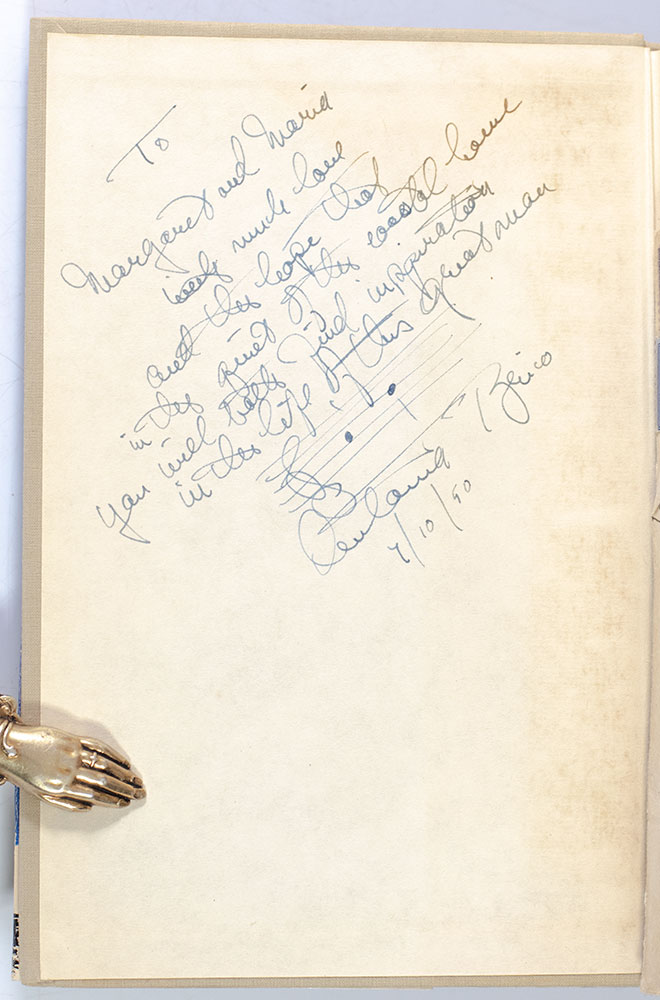 To
Margaret and Maria
with much love
and the hope that
in the quiet of the coastal home
you will both find inspiration
in the life of this great man
Benco
7/10/90